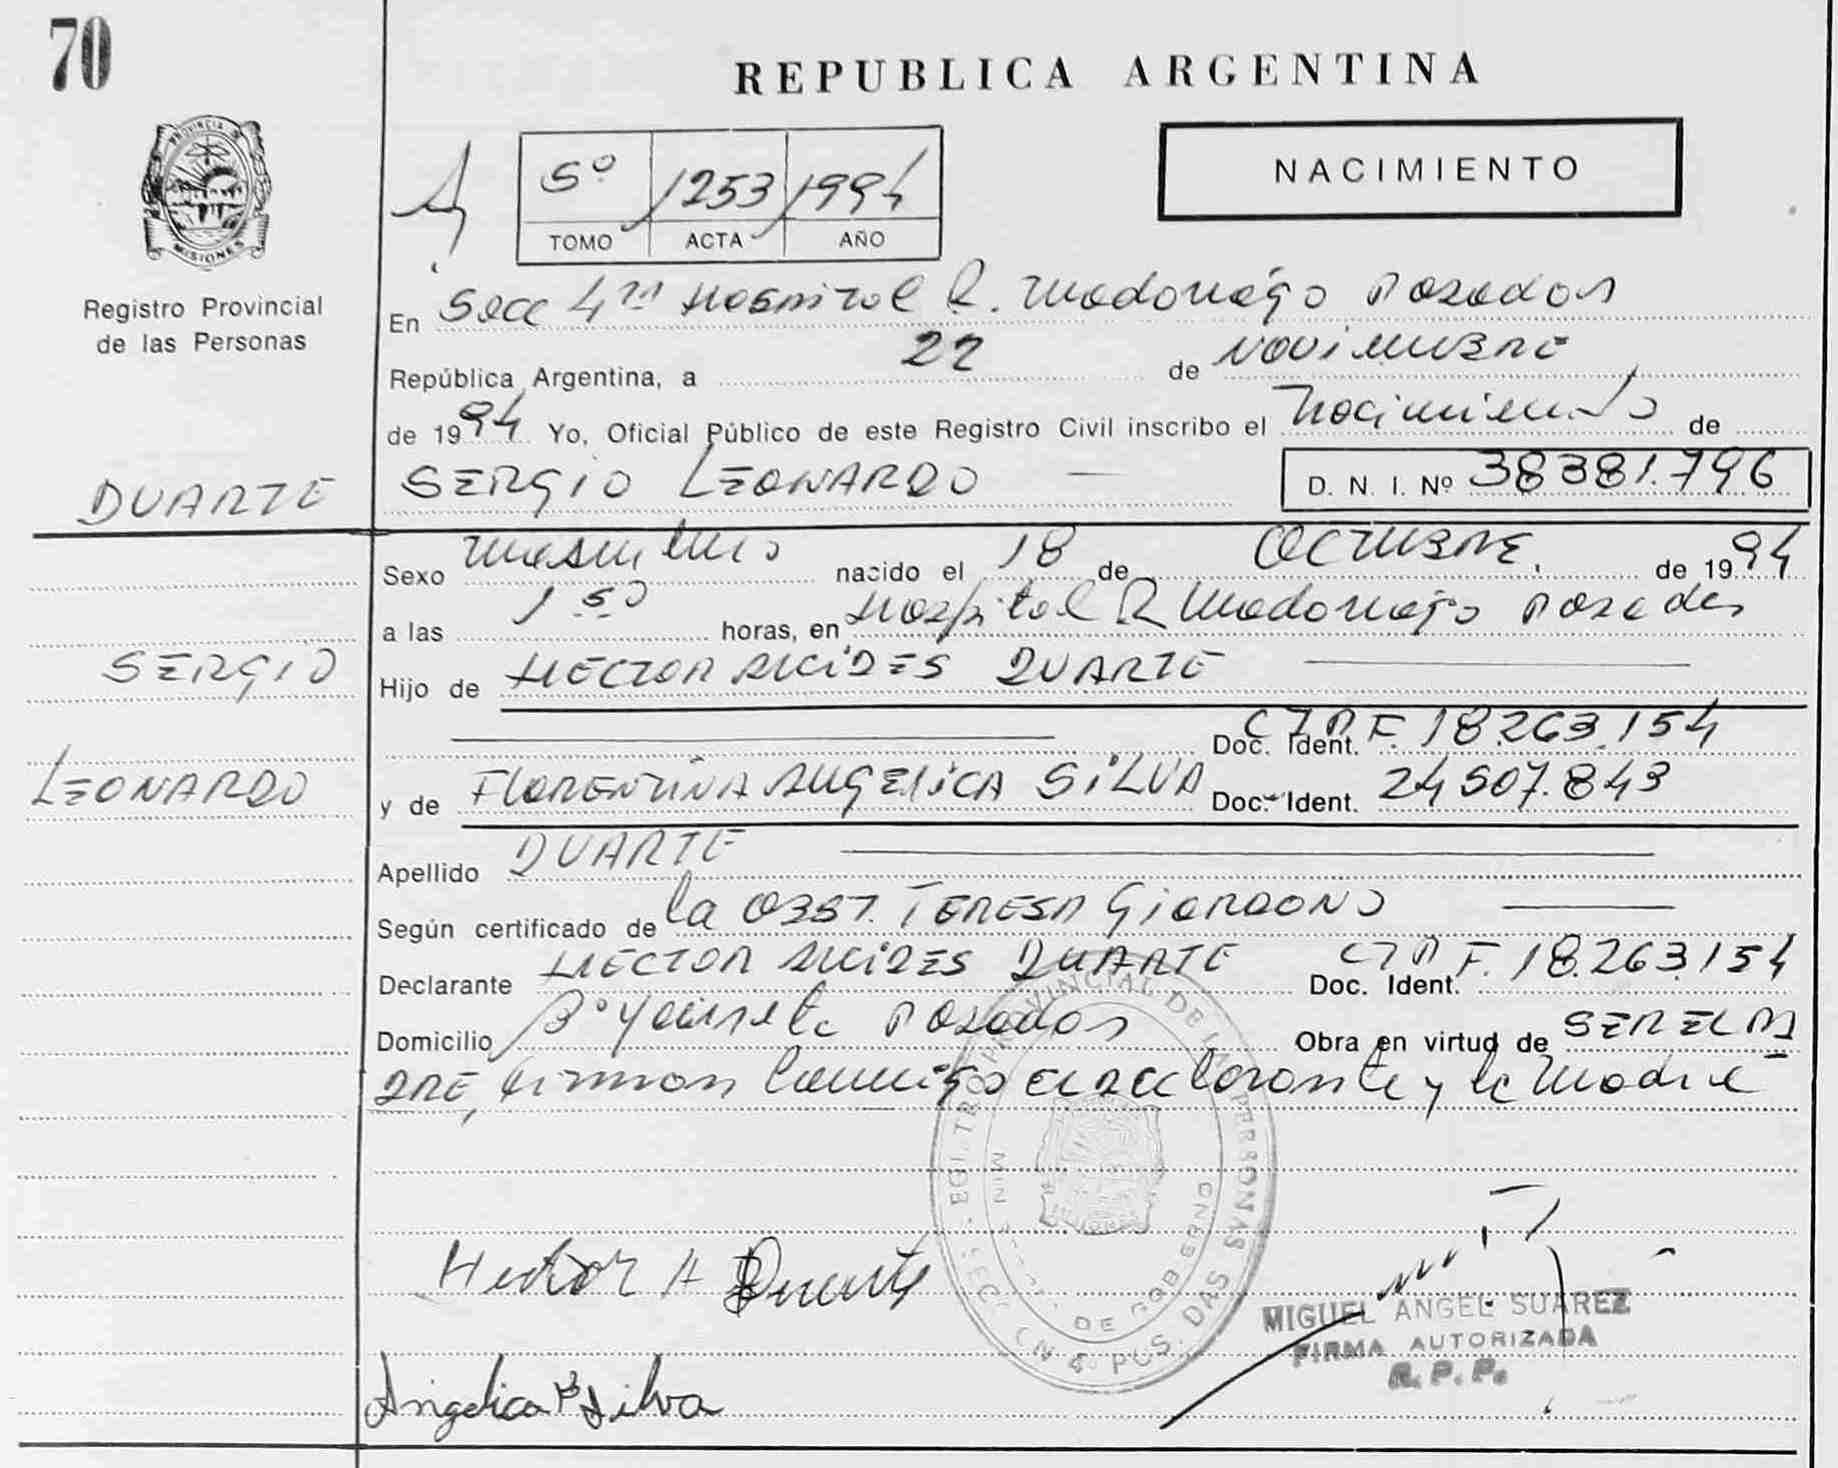 70
REPUBLICA ARGENTINA
PROVINCIA D
MISIONES
Registro Provincial
de las Personas
5º 1253 1994
TOMO ACTA AÑO
NACIMIENTO
En Secc 4ta Hospital R. Madariaga Posadas
República Argentina, a 22 de Noviembre
de 1994 Yo, Oficial Público de este Registro Civil inscribo el Nacimiento de
DUARTE SERGIO LEONARDO — D. N. I. Nº 38381.796
Sexo masculino nacido el 18 de OCTUBRE, de 1994
a las 1 50 horas, en Hospital R Madariaga Posadas
SERGIO
Hijo de HECTOR ALCIDES DUARTE
Doc. Ident. F. 18.263.154
LEONARDO
y de FLORENTINA ANGELICA SILVA Doc. Ident. 24507.843
Apellido DUARTE
Según certificado de la OBST. TERESA GIARDONO
Declarante HECTOR ALCIDES DUARTE Doc. Ident. F. 18.263.154
Domicilio Bº Posadas Obra en virtud de SER EL PA
DRE, firman conmigo el declarante y la Madre
PROVINCIAL DE LAS PERSONAS
DE GOBIERNO
Hector A Duarte
MIGUEL ANGEL SUAREZ
FIRMA AUTORIZADA
R. P. P.
Angelica Silva